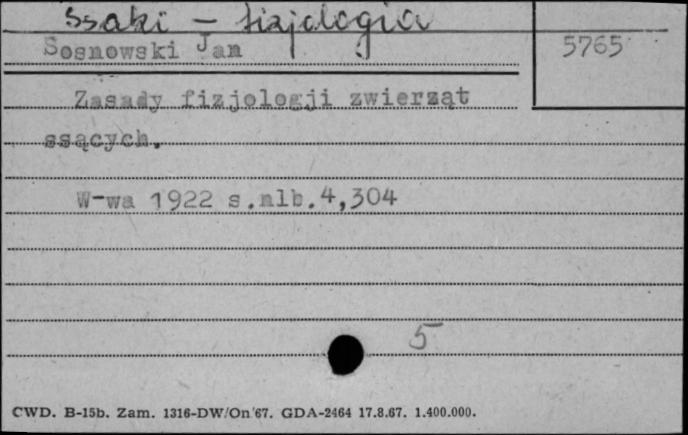 Ssaki – fizjologia
Sosnowski Jan
5765
Zasady fizjologji zwierząt
ssących.
W-wa 1922 s.nlb.4,304
5
CWD. B-15b. Zam. 1316-DW/On/67. GDA-2464 17.8.67. 1.400.000.